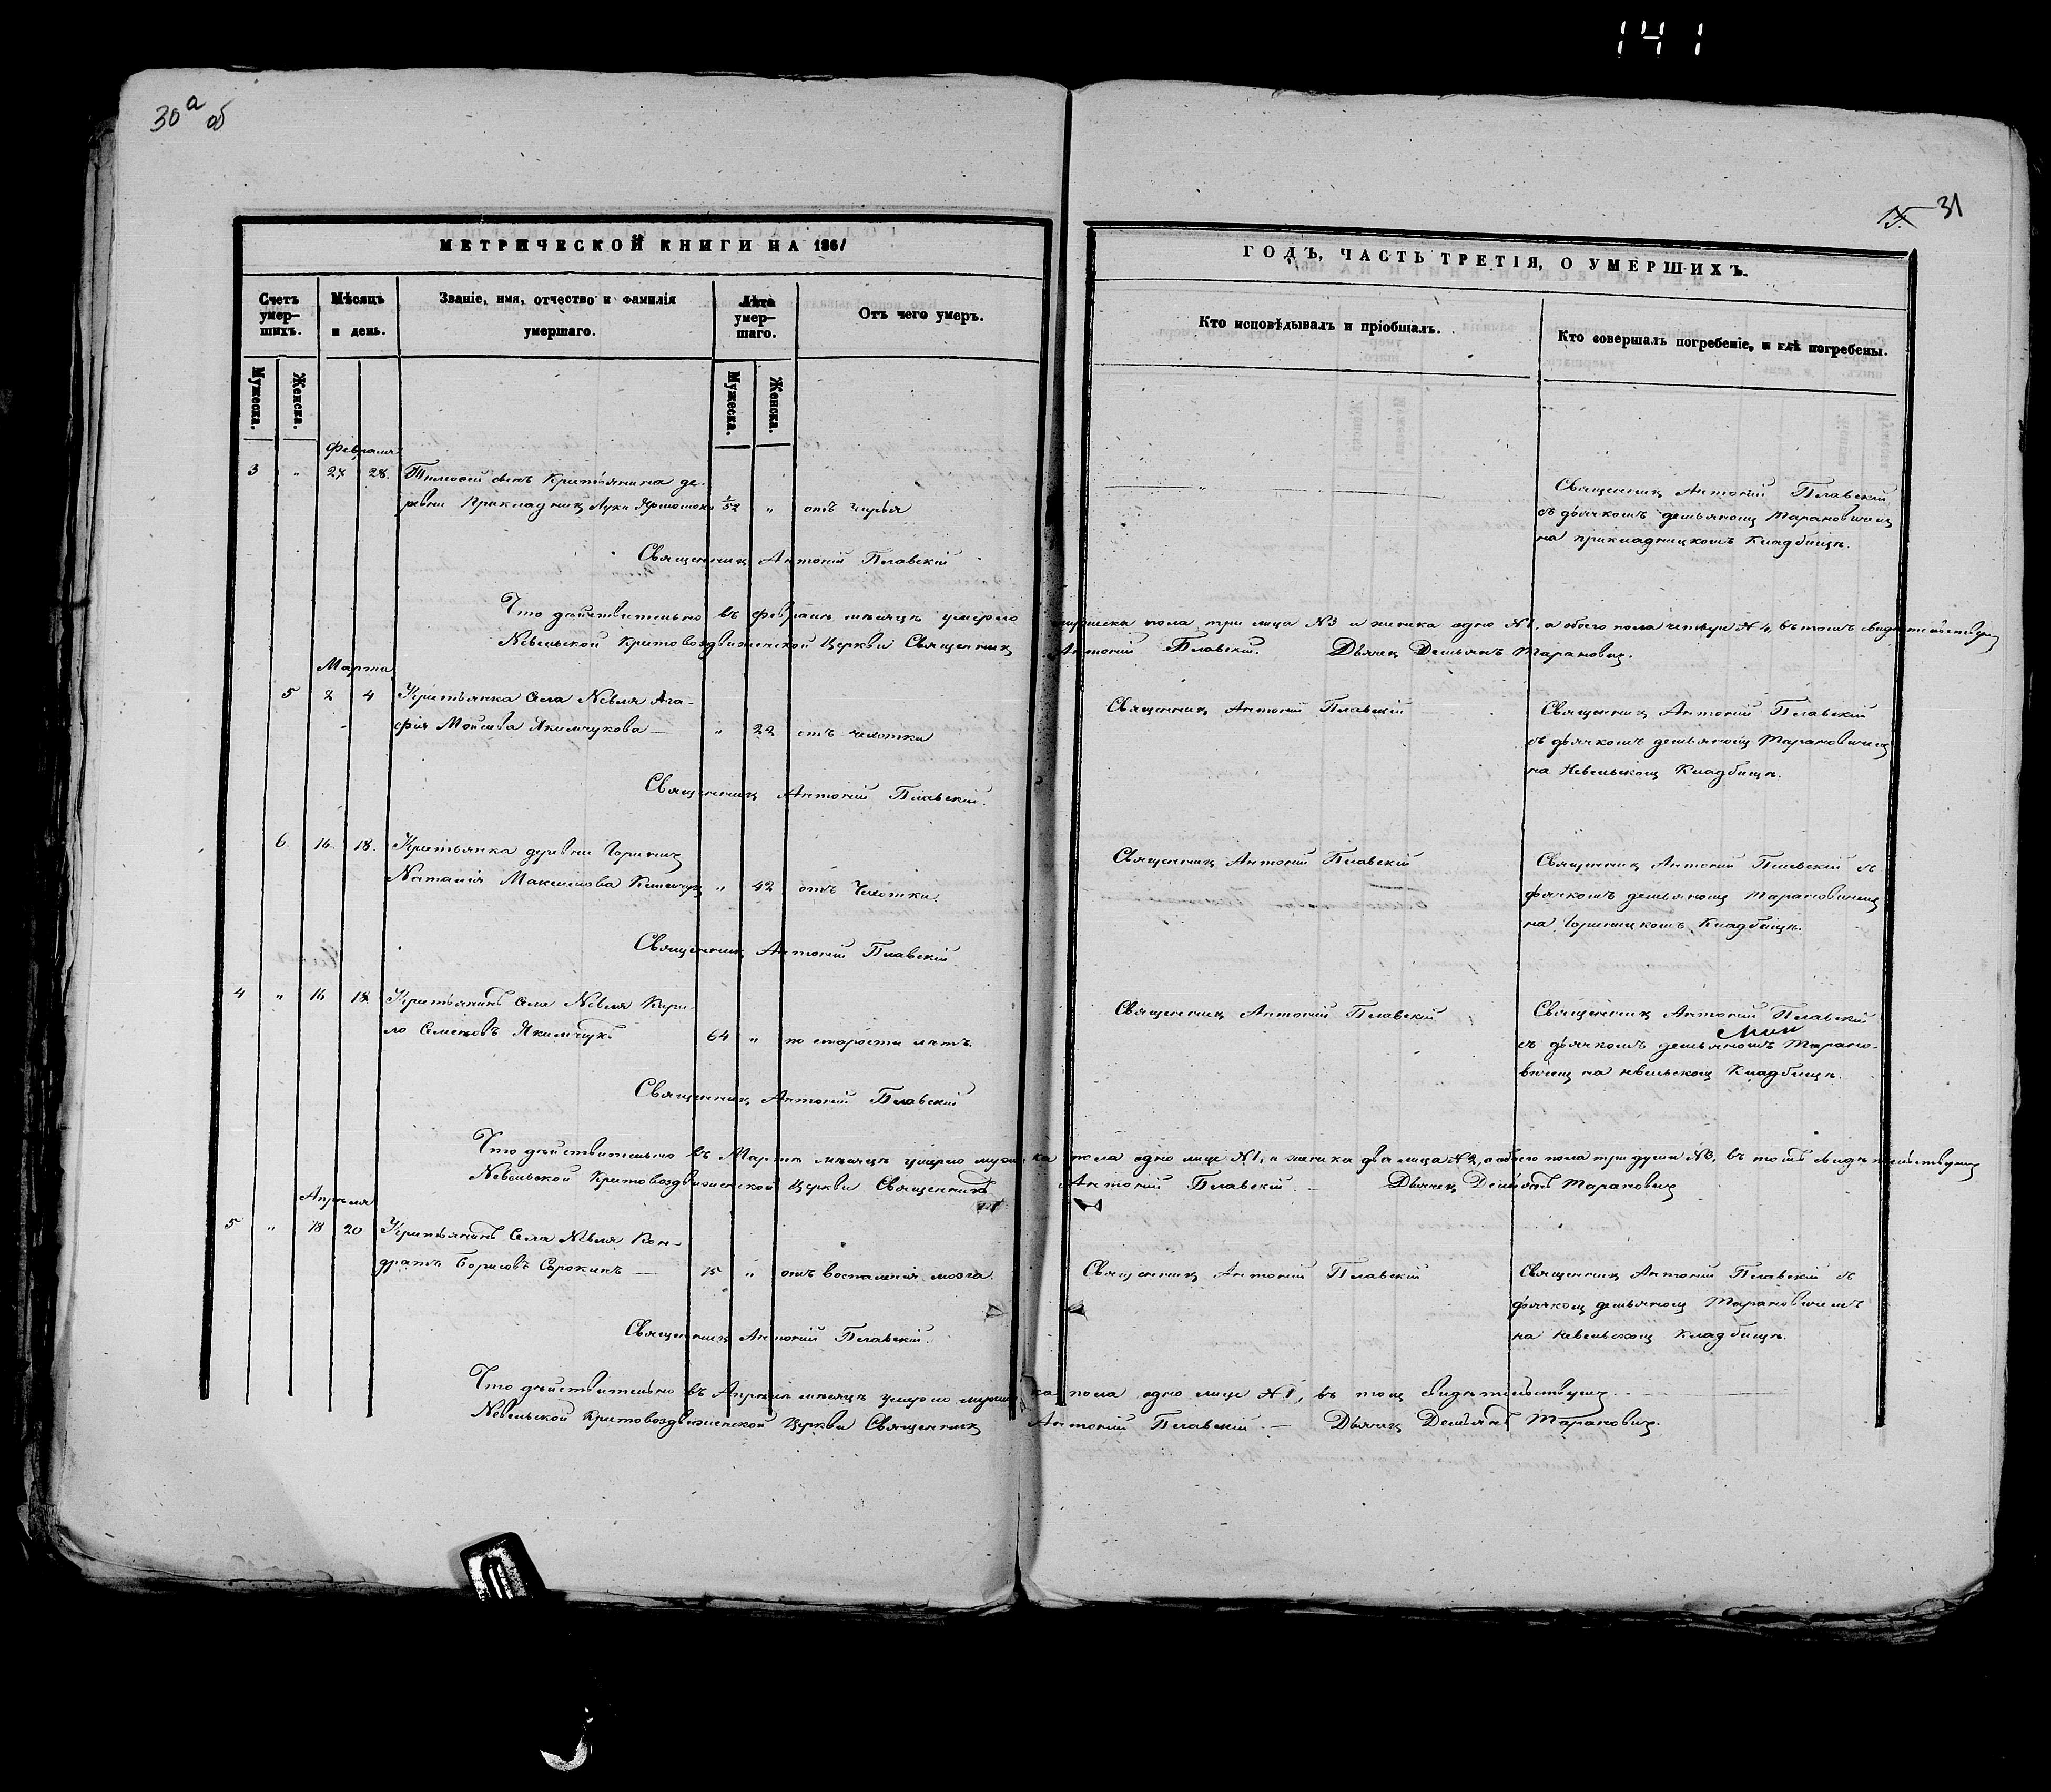 141
30а об
15. 31
МЕТРИЧЕСКОЙ КНИГИ НА 1861
ГОДЪ, ЧАСТЬ ТРЕТІЯ, О УМЕРШИХЪ.
Счетъ умер-
шихъ.
Мѣсяцъ
и день.
Званіе, имя, отчество и фамилія
умершаго.
Лѣта
умер-
шаго.
Отъ чего умеръ.
Кто исповѣдывалъ и пріобщалъ.
Кто совершалъ погребеніе, и гдѣ погребены.
Мужеска.
Женска.
Мужеска.
Женска.
Февраля
3 " 27 28. Тимофей сынъ Крестьянина де-
ревни Прикладникъ Луки 1/52 " отъ чирья
Священникъ Антоній Плавскій
съ дьячкомъ демьяномъ Тарановичемъ
на прикладницкомъ Кладбищѣ.
Священникъ Антоній Плавскій
Что дѣйствительно въ Февралѣ мѣсяцѣ умерло мужеска пола три лица №3 и женска одно №1, а обоего пола четыри №4, въ томъ свидѣтельствуемъ
Невельской Крестовоздвиженской Церкви Священникъ Антоній Плавскій. Дьячекъ Демьянъ Тарановичъ.
Марта
5 2 4 Крестьянка Села Невля Ага-
фія Моисеева Якимчукова — " 22 отъ чехотки
Священникъ Антоній Плавскій
Священникъ Антоній Плавскій
съ дьячкомъ демьяномъ Тарановичемъ
на Невельскомъ Кладбищѣ.
Священникъ Антоній Плавскій.
6. 16. 18. Крестьянка деревни Горичичъ
Наталія Максимова " 42 отъ Чехотки.
Священникъ Антоній Плавскій
Священникъ Антоній Плавскій съ
дьячкомъ демьяномъ Тарановичемъ
на Кладбищѣ.
Священникъ Антоній Плавскій
4 " 16 18. Крестьянинъ Села Невля Кири-
ло Семеновъ Якимчукъ 64 " по старости лѣтъ.
Священникъ Антоній Плавскій
Священникъ Антоній Плавскій
съ дьячкомъ демьяномъ Тарано-
вичемъ на невельскомъ Кладбищѣ.
Священникъ Антоній Плавскій
Что дѣйствительно въ Мартѣ мѣсяцѣ умерло мужеска пола одно лице №1, и женска два лица №2, а обоего пола три души №3, въ томъ свидѣтельствуемъ
Невельской Крестовоздвиженской Церкви Священникъ Антоній Плавскій. — Дьячекъ Демьянъ Тарановичъ
Апрѣля
5 " 18 20 Крестьянинъ Села Невля Кон-
дратъ Борисовъ Сорокинъ — 75 " отъ воспаленія мозга.
Священникъ Антоній Плавскій
Священникъ Антоній Плавскій съ
дьячкомъ демьяномъ Тарановичемъ
на невельскомъ Кладбищѣ.
Священникъ Антоній Плавскій.
Что дѣйствительно въ Апрѣлѣ мѣсяцѣ умерло мужеска пола одно лице №1, въ томъ свидѣтельствуемъ.
Невельской Крестовоздвиженской Церкви Священникъ Антоній Плавскій. — Дьячекъ Демьянъ Тарановичъ.